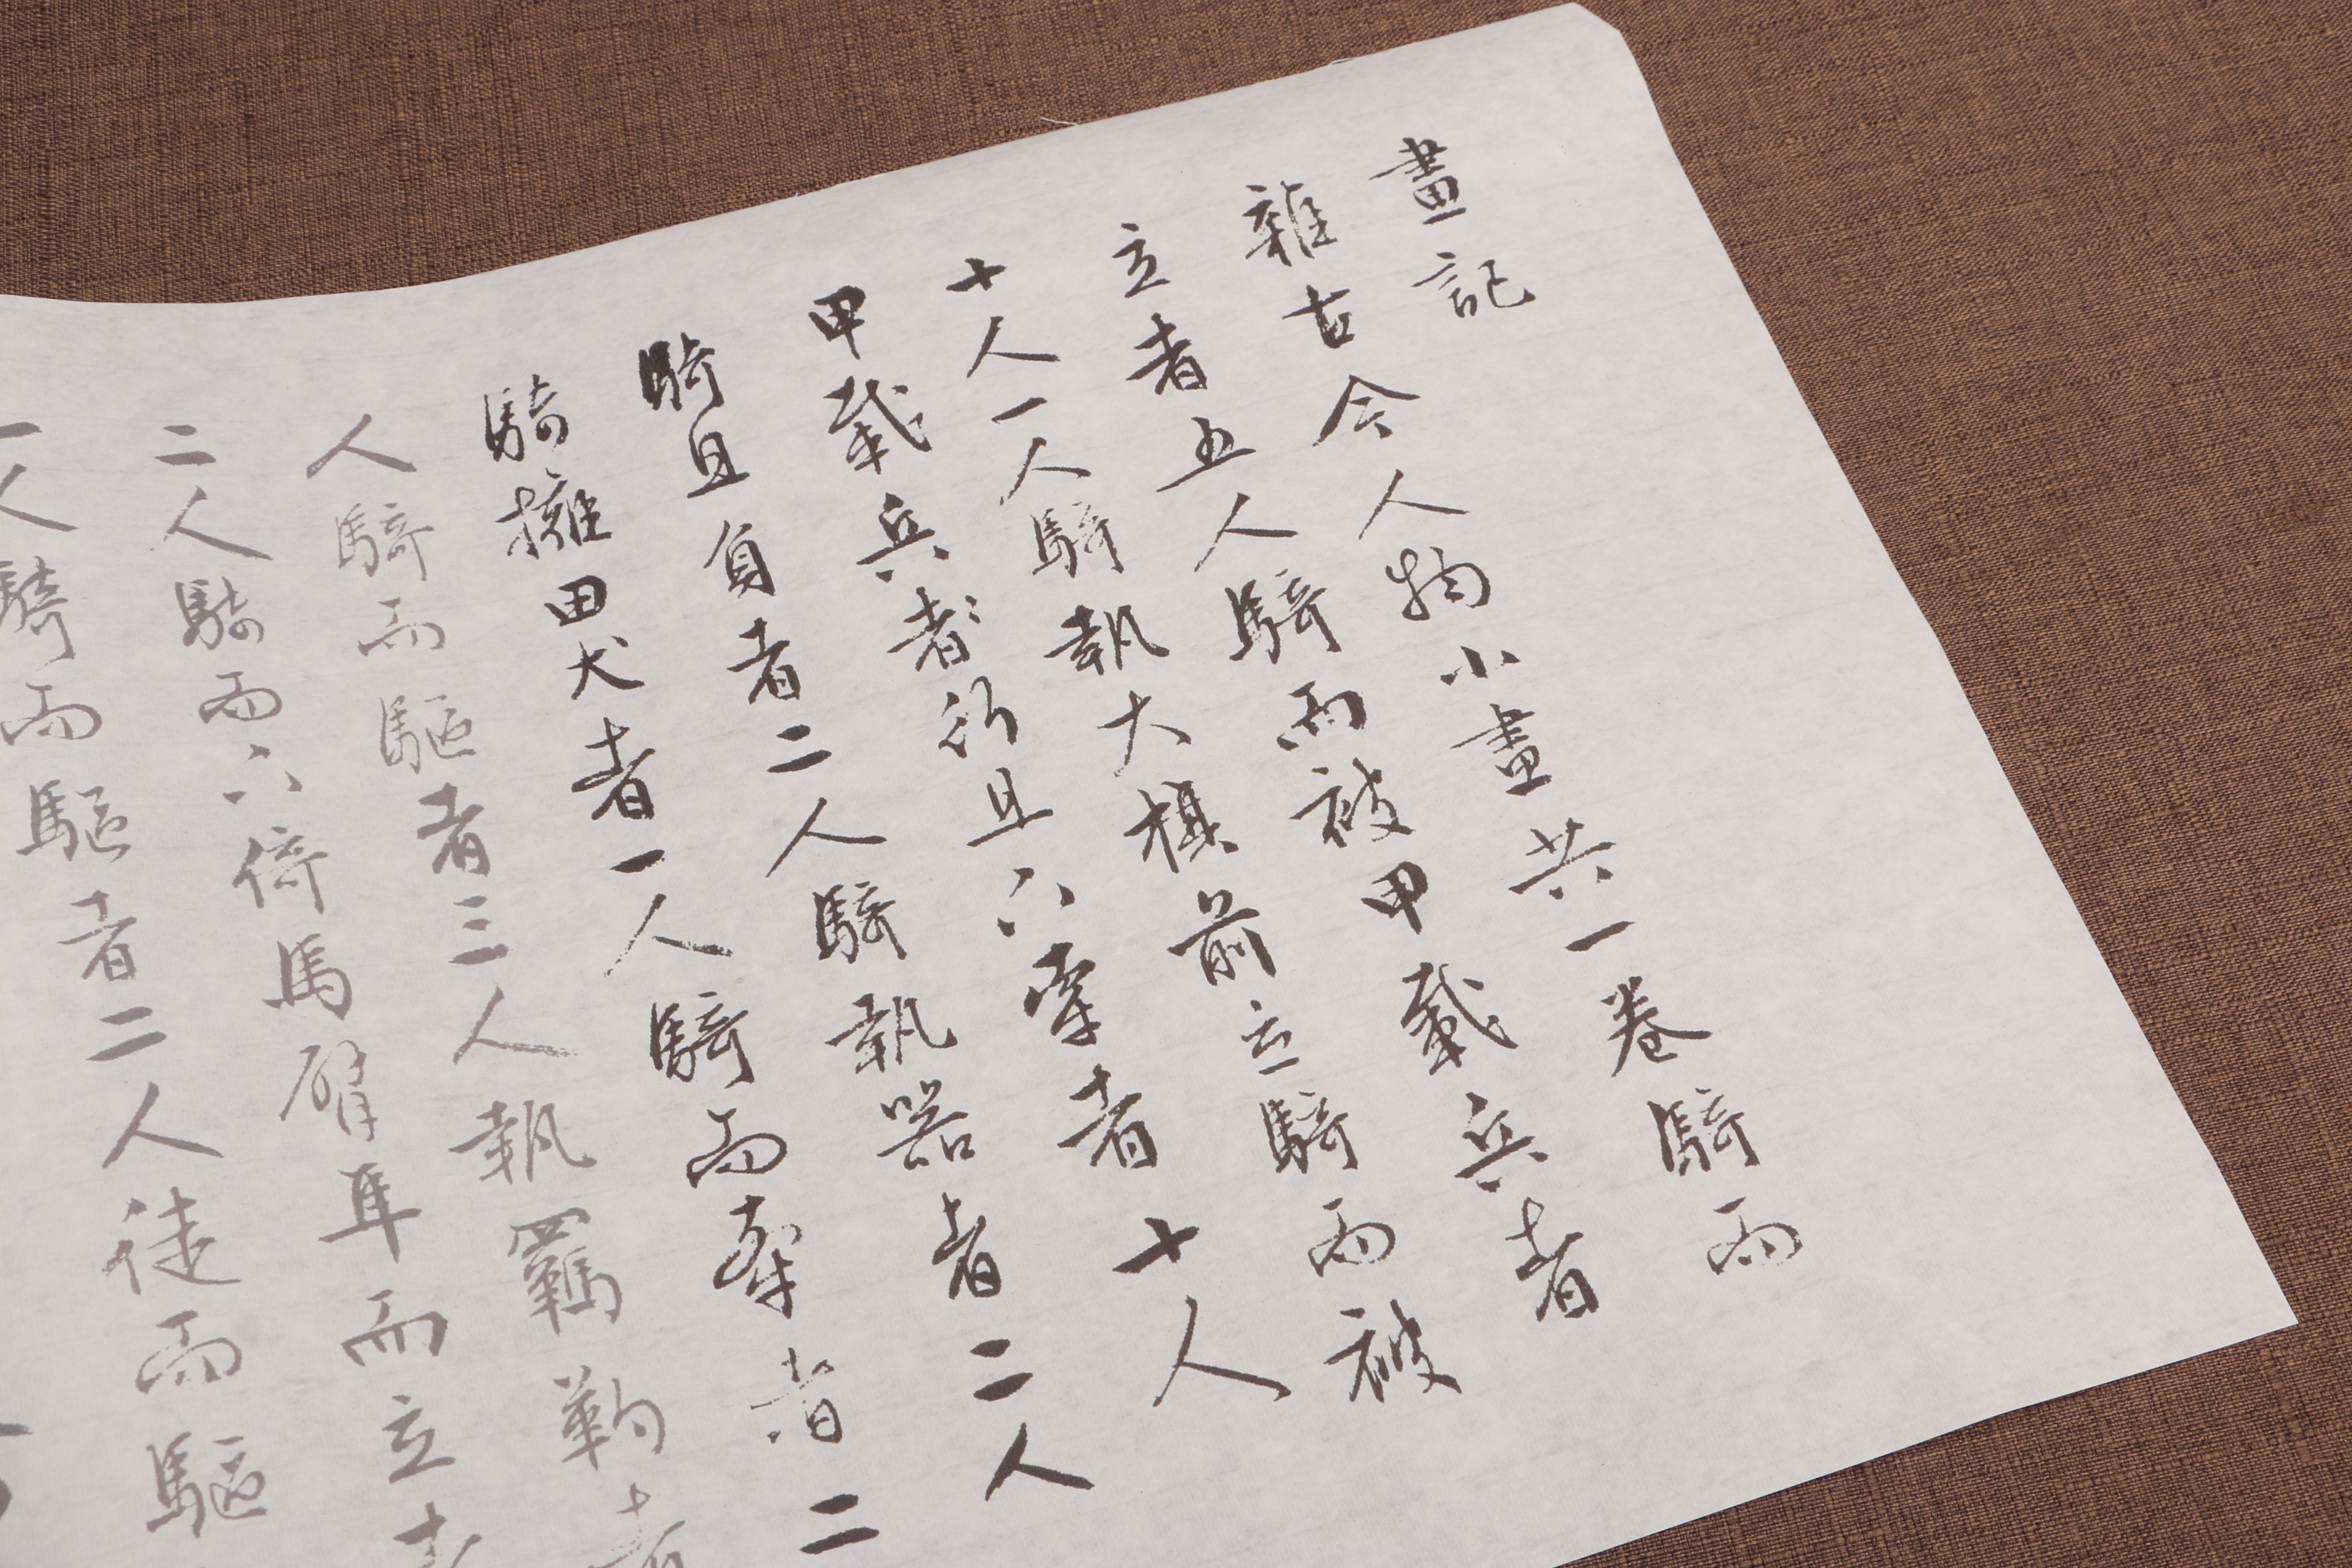 畫記
雜古今人物小畫共一卷騎而
立者五人騎而被甲載兵者
十人一人騎執大旗前立騎而被
甲載兵者行且下牽者十人
騎且負者二人騎執器者二人
騎擁田犬者一人騎而牽者二
人騎而驅者三人執羈靮者
二人騎而下倚馬臂隼而立者
一人騎而驅者二人徒而驅